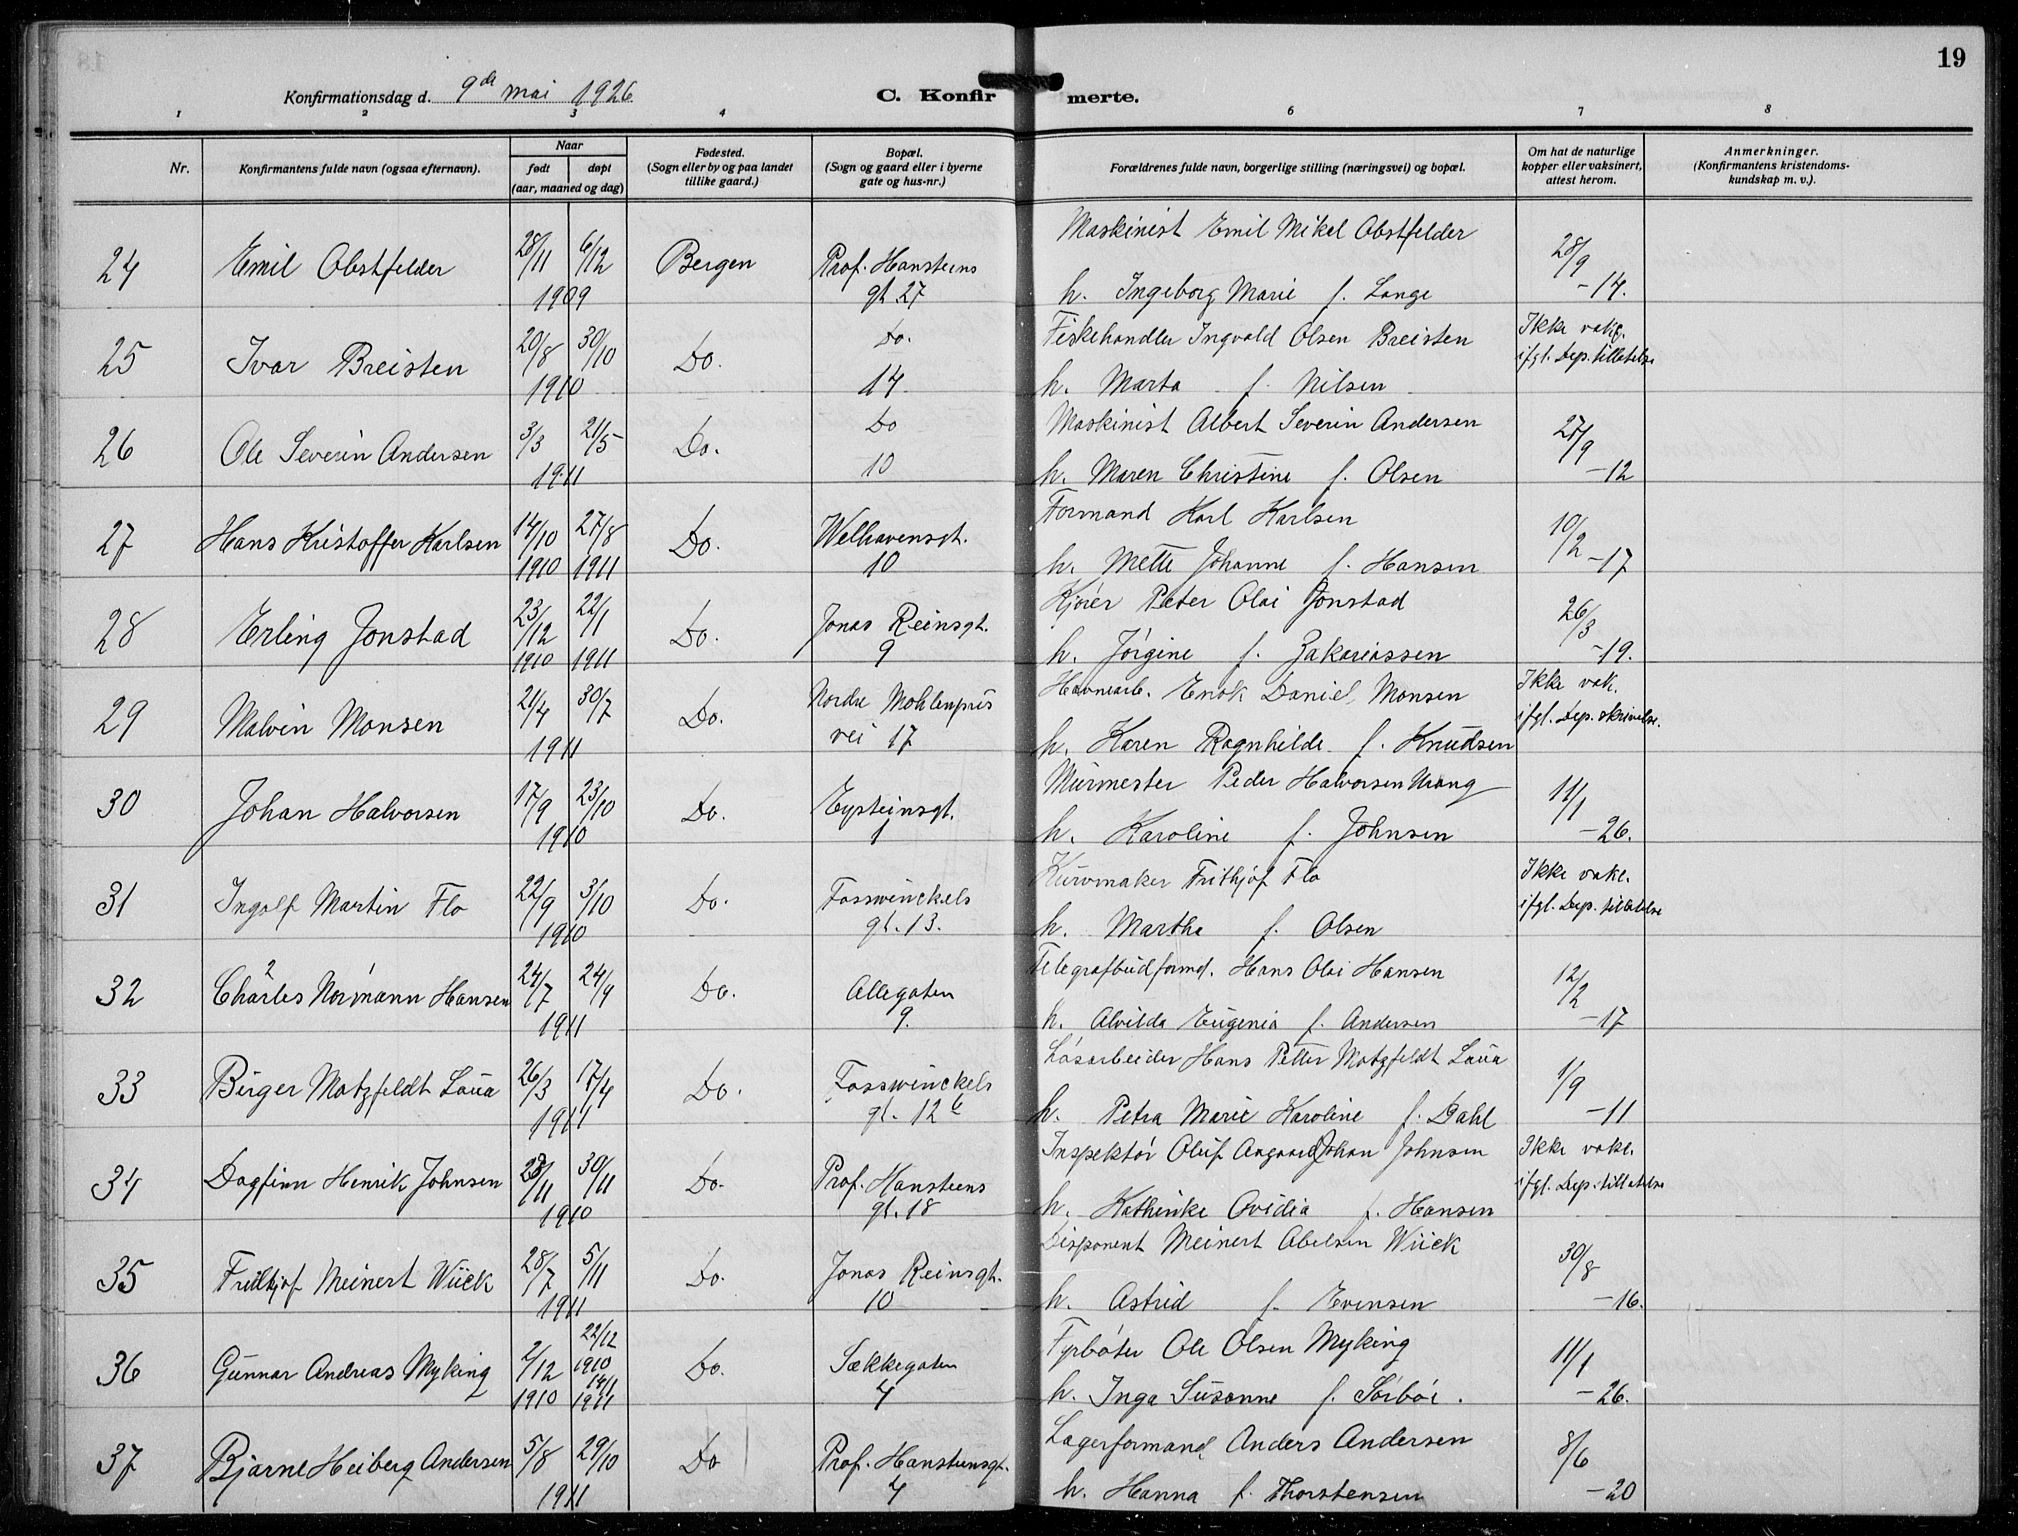 19
Konfirmationsdag d. 9de mai 1926
C. Konfirmerte.
1 2 3 4 6 7 8
Nr.
Konfirmantens fulde navn (ogsaa efternavn).
Naar
født døpt
(aar, maaned og dag)
Fødested.
(Sogn eller by og paa landet
tillike gaard.)
Bopæl.
(Sogn og gaard eller i byerne
gate og hus-nr.)
Forældrenes fulde navn, borgerlige stilling (næringsvei) og bopæl.
Om hat de naturlige
kopper eller vaksinert,
attest herom.
Anmerkninger.
(Konfirmantens kristendoms-
kundskap m. v.).
Maskinist Emil Mikel Obstfelder
24 Emil Obstfelder 28/11 6/12 Bergen Prof. Hansteens 28/9
1909 gt 27 h. Ingeborg Marie f. Lange -14.
Do. Fiskehandler Ingvald Olsen Breisten Ikke vakc.
25 Ivar Breisten 20/8 30/10 Do. ifgl. Dep. tillatelse
1910 14 h. Marta f. Nilsen
Do Maskinist Albert Severin Andersen
26 Ole Severin Andersen 3/3 21/5 Do. 27/9
1911 10 h. Maren Christine f. Olsen -12
Formand Karl Karlsen
27 Hans Kristoffer Karlsen 14/10 27/8 Do. Welhavensgt. 10/2
1910 1911 10 h. Mette Johanne f. Hansen -17
Kjører Peter Olai Jonstad
28 Erling Jonstad 23/12 22/1 Do. Jonas Reinsgt. 26/3
1910 1911 9 h. Jørgine f. Zakariassen -19.
Havnearb. Enok Daniel Monsen Ikke vak.
29 Malvin Monsen 21/4 30/7 Do. Nordre Mohlenpris ifgl. Dep. skrivelse.
1911 vei 17 h. Karen Ragnhilde f. Knudsen
Murmester Peder Halvorsen Urang
30 Johan Halvorsen 17/9 23/10 Do. Eysteinsgt. 11/1
1910 1 h. Karoline f. Johnsen -26.
Kurvmaker Frithjof Flo Ikke vakc.
31 Ingolf Martin Flo 22/9 3/10 Do. Fosswinckels ifgl. Dep. tillatelse
1910 gt. 13. h. Martha f. Olsen
Telegrafbudformd. Hans Olai Hansen
2 1
32 Charles Normann Hansen 24/7 24/9 Do. Allegaten 12/2
1911 9. h. Alvilda Eugenia f. Andersen -17
Løsarbeider Hans Petter Motzfeldt Laua
33 Birger Motzfeldt Laua 26/3 17/4 Do. Fosswinckels 1/9
1911 gt. 12 b h. Petra Marie Karoline f. Dahl -11
Inspektør Oluf Aagaard Johan Johnsen Ikke vakc.
34 Dagfinn Henrik Johnsen 23/11 30/11 Do. Prof. Hansteens ifgl. Dep. tillatelse
1910 gt. 18 h. Kathinke Ovidia f. Hansen
Disponent Meinert Abelsen Wiick
35 Frithjof Meinert Wiick 28/7 5/11 Do. Jonas Reinsgt. 30/8
1911 10 h. Astrid f. Evensen -16.
22/12 Fyrbøter Ole Olsen Myking
36 Gunnar Andreas Myking 2/12 1910 Do. Sækkegaten 11/1
14/1
1910 1911 4 h. Inga Susanne f. Sørbør. -26.
Lagerformand Anders Andersen
37 Bjarne Heiberg Andersen 5/8 29/10 Do Prof. Hansteensgt. 8/6
1911 4 h. Hanna f. Thorstensen -20